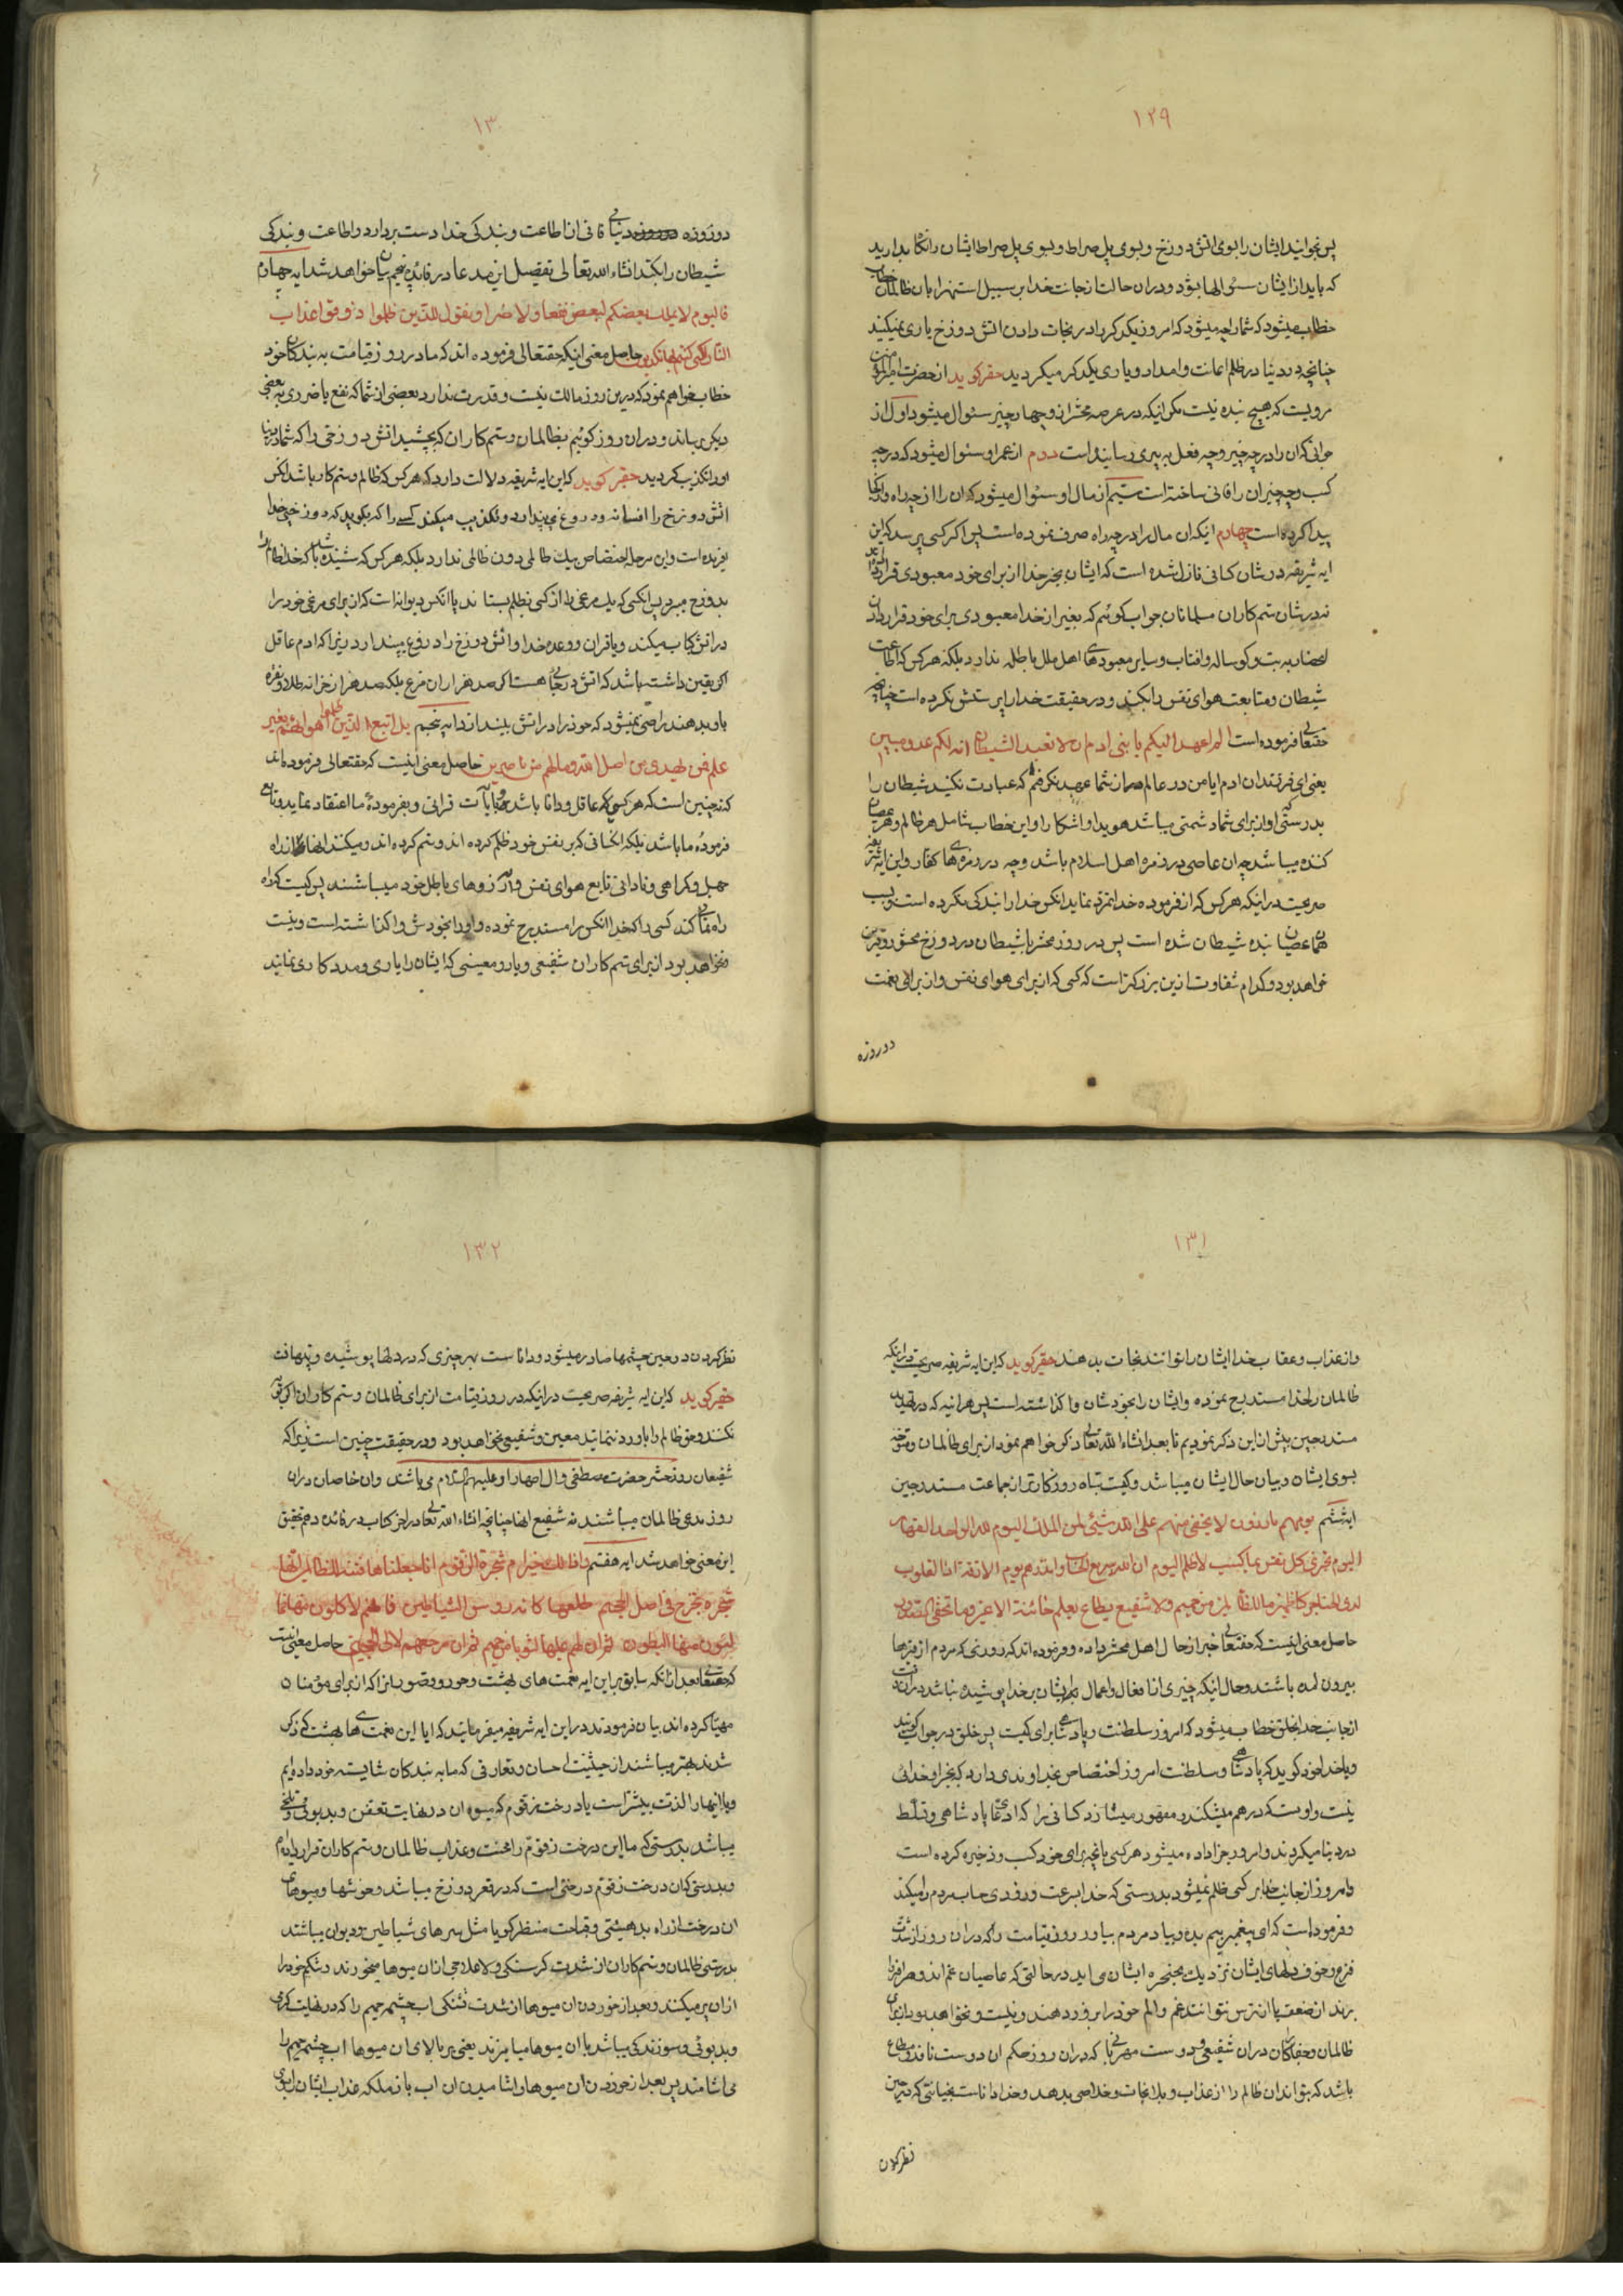 ۱۲۹
پس بخوانید ایشان را بسوی اتش دوزخ و بسوی پل صراط و بسوی پل صراط ایشان را نکاه بدارید
که باید از ایشان سئوالها بشود و دران حالت از جانب خدا بر سبیل استهزا بان ظالمان خطاب
خطاب میشود که شما را چه میشود که امروز یکدیکر را در نجات دادن اتش دوزخ یاری نمیکنید
چنانچه در دنیا در ظلم اعانت و امداد و یاری یکدیکر میکردید حقیر کوید از حضرت امیرالمؤمنین
مرویست که هیچ بنده نیست مکر اینکه در عرصه محشر از و چهار چیز سئوال میشود اول از
جوانی که ان را در چه چیز و چه فعل به پیری رسانیده است دوم از عمر او سئوال میشود که در چه
کسب و چه چیز ان را فانی ساخته است سیم از مال او سئوال میشود که ان را از چه راه و از کجا
پیدا کرده است چهارم اینکه ان مال را در چه راه صرف نموده است پس اکر کسی پرسد که این
ایه شریفه در شان کسانی نازل شده است که ایشان بجز خدا از برای خود معبودی قرار داده اند
نه در شان ستم کاران مسلمانان جواب کوئیم که بغیر از خدا معبودی برای خود قرار دادن
انحصار به بت و کوساله و افتاب و سایر معبودهای اهل ملل باطله ندارد بلکه هر کس که اطاعت
شیطان و متابعت هوای نفس را بکند در حقیقت خدا را پرستش نکرده است چنانچه
حقتعالی فرموده است الم اعهد الیکم یا بنی ادم ان لا تعبدوا الشیطان انه لکم عدو مبین
یعنی ای فرزندان ادم ایا من در عالم از شما عهد نکرفتم که عبادت نکنید شیطان را
بدرستی که او از برای شما دشمنی میباشد هویدا و اشکار و این خطاب شامل هر ظالم و هر عصیان
کننده میباشد چه ان عاصی در زمره اهل اسلام باشد و چه در زمره های کفار و این ایه شریفه
صریحست در اینکه هر کس که از فرموده خدا تمرد نماید انکس خدا را بندکی نکرده است و بسبب
همان عصیان بنده شیطان شده است پس در روز محشر با شیطان در دوزخ محشور و قرین
خواهد بود و کدام شقاوت ازین بزرکتر است که کسی که از برای هوای نفس و از برای نعمت
دوروزه
۱۳
دوروزه دنیای فانی از اطاعت و بندکی خدا دست بردارد و اطاعت و بندکی
شیطان را بکند انشاء الله تعالی تفصیل این مدعا در فائده پنجم بیان خواهد شد ایه چهارم
فالیوم لا یملک بعضکم لبعض نفعا و لا ضرا و نقول للذین ظلموا ذوقوا عذاب
النار التی کنتم بها تکذبون حاصل معنی اینکه حقتعالی فرموده اند که ما در روز قیامت به بندکان خود
خطاب خواهم نمود که درین روز مالک نیست و قدرت ندارد بعضی از شما که نفع یا ضرری به بعضی
دیکر برساند و دران روز کوئیم بظالمان و ستم کاران که بچشید اتش دوزخی را که شما در دنیا
او را تکذیب کردید حقیر کوید که این ایه شریفه دلالت دارد که هر کس که ظالم و ستم کار باشد انکس
اتش دوزخ را افسانه و دروغ می پندارد و تکذیب میکند کسی را که بکوید که دوزخی خدا
افریده است و این مرحله اختصاص بیک ظالمی دون ظالمی ندارد بلکه هر کس که شنیده باشد که خدا ظالم را
بدوزخ میبرد پس انکسی که یک مرغی را از کسی بظلم بستاند یا انکس دیوانه است که از برای مرغی خود را
در اتش کباب میکند و یا قران و وعده خدا و اتش دوزخ را دروغ می پندارد زیرا که ادم عاقل
اکر یقین داشته باشد که اتش در جائی هست اکر صد هزاران مرغ بلکه صد هزار خزانه طلا و نقره
باو بدهند راضی نمیشود که خود را در اتش بیندازد ایه پنجم بل اتبع الذین ظلموا اهوائهم بغیر
علم فمن یهدی من اضل الله و ما لهم من ناصرین حاصل معنی اینست که حقتعالی فرموده اند
که نه چنین است که هر کسی که عاقل و دانا باشد بایات قرانی و بفرمودهٔ ما اعتقاد نماید و تابع
فرمودهٔ ما باشد بلکه انکسانی که بر نفس خود ظلم کرده اند و ستم کرده اند و میکنند انها از راه
جهل و کمراهی و نادانی تابع هوای نفس و ارزوهای باطل خود میباشند پس کیست که راه
راهنمائی کند کسی را که خدا انکس را مستدرج نموده و او را بخودش واکذاشته است و نیست
و نخواهد بود از برای ستم کاران شفیعی و یار و معینی که ایشان را یاری و مددکاری نمایند
۱۳۱
و از عذاب و عقاب خدا ایشان را توانند نجات بدهند حقیر کوید که این ایه شریفه صریحست در اینکه
ظالمان را خدا مستدرج نموده و ایشان را بخودشان واکذاشته است پس هر اینه که در تهدید
مستدرجین پیش ازین ذکر نمودیم تا بعد انشاء الله تعالی ذکر خواهم نمود از برای ظالمان و متوجه
بسوی ایشان و بیان حال ایشان میباشد و کیست تباه روزکارتر از جماعت مستدرجین
ایه ششم یوم هم بارزون لا یخفی منهم علی الله شیئی لمن الملک الیوم لله الواحد القهار
الیوم تجزی کل نفس بما کسبت لا ظلم الیوم ان الله سریع الحساب و انذرهم یوم الازفة اذ القلوب
لدی الحناجر کاظمین ما للظالمین من حمیم و لا شفیع یطاع یعلم خائنة الاعین و ما تخفی الصدور
حاصل معنی اینست که حقتعالی خبر از حال اهل محشر داده و فرموده اند که روزی که مردم از قبرها
بیرون امده باشند و حال انکه چیزی از افعال و اعمال ایشان بر خدا پوشیده نباشد دران وقت
از جانب خدا بخلق خطاب میشود که امروز سلطنت و پادشاهی برای کیست پس خلق در جواب کویند
و یا خدا خود کوید که پادشاهی و سلطنت امروز اختصاص بخداوندی دارد که بجز او خدائی
نیست و اوست که درهم میشکند و مقهور میسازد کسانی را که ادعای پادشاهی و تسلط
در دنیا میکردند و امروز جزا داده میشود هر کسی بانچه برای خود کسب و ذخیره کرده است
و امروز از جانب خدا بر کسی ظلم نمیشود بدرستی که خدا بسرعت و زودی حساب مردم را میکند
و فرموده است که ای پیغمبر بیم بده و بیاد مردم بیاور روز قیامت را که دران روز از شدت
فزع و خوف دلهای ایشان نزدیک بحنجره ایشان می اید در حالتی که عاصیان غم اندوه
برند از ضعف یا از ترس نتوانند غم و الم خود را بروز دهند و نیست و نخواهد بود از برای
ظالمان و جفاکاران دران شفیعی و دوست مهربانی که دران روز حکم ان دوست نافذ و مطاع
باشد که بتواند ان ظالم را از عذاب و بلا نجات و خلاصی بدهد و خدا داناست بخیانتی که در حین
نظر کردن
۱۳۲
نظر کردن در حین چشمها صادر میشود و داناست بهر چیزی که در دلها پوشیده و پنهانست
حقیر کوید که این ایه شریفه صریحست در اینکه در روز قیامت از برای ظالمان و ستم کاران اکر توبه
نکنند و حق ظالم را یا رد ننمایند معین و شفیعی نخواهد بود و در حقیقت چنین است زیرا که
شفیعان روز حشر حضرت مصطفی و ال اطهار او علیهم السلام می باشند و ان خاصان دران
روز مدعی ظالمان میباشند نه شفیع انها چنانچه انشاء الله تعالی در اخر کتاب در فائده دهم تحقیق
این معنی خواهد شد ایه هفتم اذلک خیر ام شجرة الزقوم انا جعلناها فتنة للظالمین انها
شجرة تخرج فی اصل الجحیم طلعها کانه رؤس الشیاطین فانهم لاکلون منها فما
لئون منها البطون ثم ان لهم علیها لشوبا من حمیم ثم ان مرجعهم لالی الجحیم حاصل معنی اینست
که حقتعالی بعد از انکه سابق بر این ایه نعمت های بهشت و حور و قصور انرا که از برای مؤمنان
مهیا کرده اند بیان فرمودند در این ایه شریفه میفرمایند که ایا این نعمت های بهشت که ذکر
شدند بهتر میباشند از حیثیت احسان و تعارفی که ما به بندکان شایسته خود داده ایم
و یا انها را لذت بیشتر است یا درخت زقوم که میوه ان در نهایت تعفن و بدبوئی و تلخی
میباشد بدرستی که ما این درخت زقوم را محنت و عذاب ظالمان و ستم کاران قرار داده ایم
و بدرستی که ان درخت زقوم درختی است که در قعر دوزخ میباشد و خوشها و میوهای
ان درخت از راه بدهیئتی و قباحت منظر کویا مثل سرهای شیاطین و دیوان میباشند
بدرستی ظالمان و ستم کاران از شدت کرسنکی و لاعلاجی ازان میوها میخورند و شکم خود را
ازان پر میکنند و بعد از خوردن ان میوها از شدت تشنکی اب چشمه حمیم را که در نهایت کرمی
و بدبوئی و سوزندکی میباشد با ان میوها میامیزند یعنی بر بالای ان میوها اب چشمه حمیم را
می اشامند پس بعد از خوردن ان میوها و اشامیدن ان اب باز ملائکه عذاب ایشان را بسوی